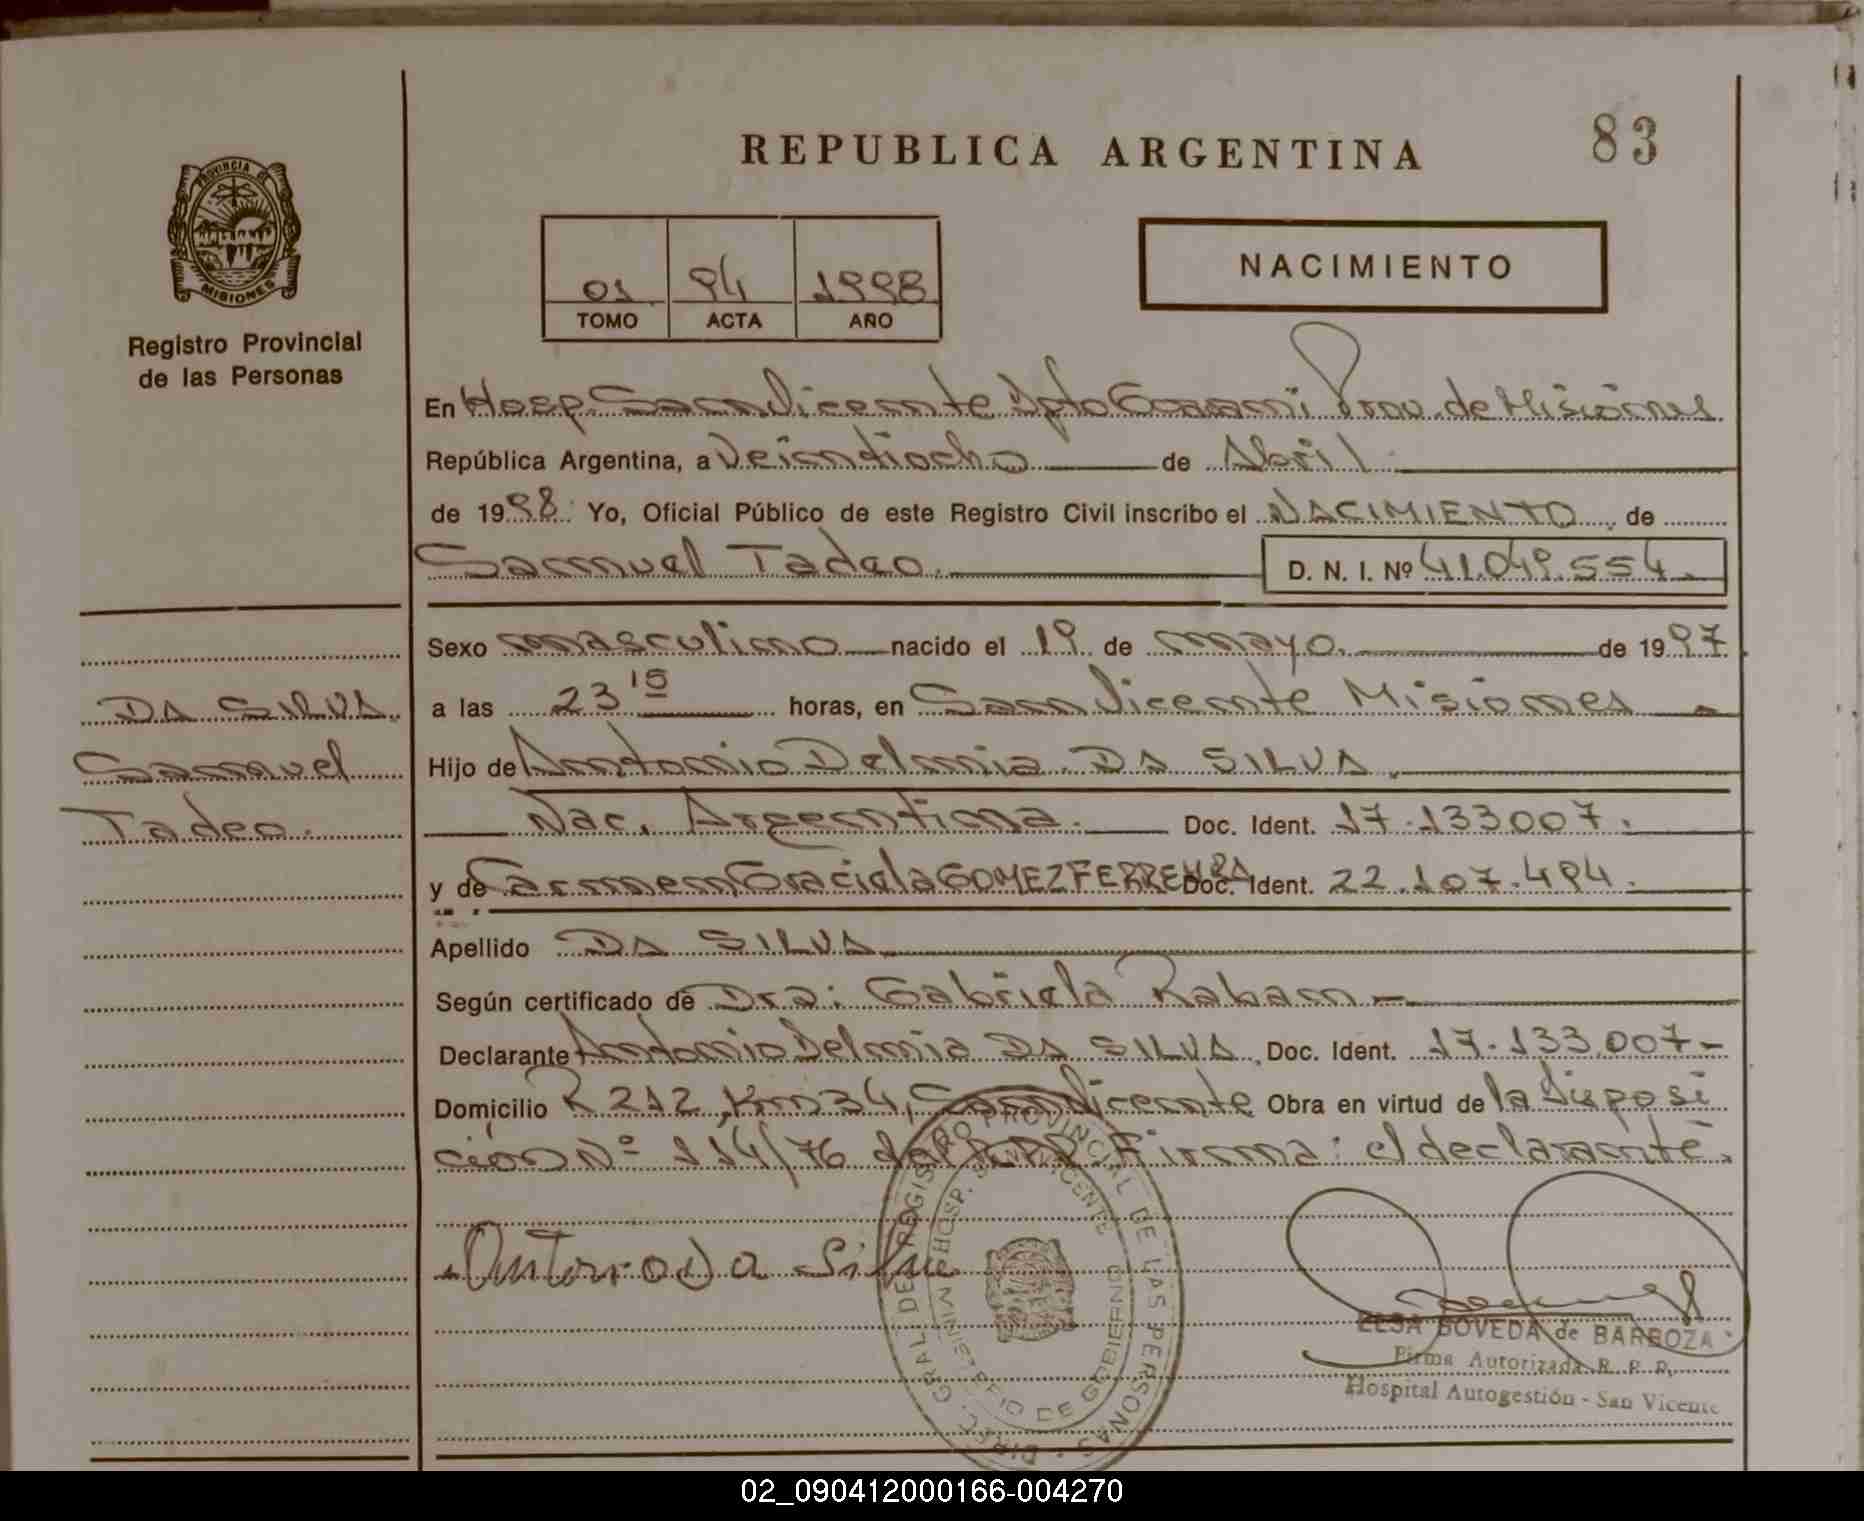 REPUBLICA ARGENTINA
83
PROVINCIA DE
MISIONES
Registro Provincial
de las Personas
01 94 1998
TOMO ACTA AÑO
NACIMIENTO
En Hosp. San Vicente Dpto Guarani Prov. de Misiones
República Argentina, a Veintiocho de Abril
de 1998. Yo, Oficial Público de este Registro Civil inscribo el NACIMIENTO de
Samuel Tadeo. D. N. I. Nº 41.049.554.
Sexo masculino nacido el 19 de mayo. de 1997
DA SILVA.
a las 23 15 horas, en San Vicente Misiones
Samuel
Hijo de Antonio Delmia DA SILVA.
Tadeo.
Nac. Argentina. Doc. Ident. 17.133007.
y de Carmen Graciela GOMEZ FERREYRA Doc. Ident. 22.107.494.
Apellido DA SILVA
Según certificado de Dra: Gabriela Raban
Declarante Antonio Delmia DA SILVA, Doc. Ident. 17.133.007-
Domicilio R 212, Km 34, San Vicente Obra en virtud de la disposi
ción Nº 114/76 del Firma: el declarante.
Antonio Da Silva
DIREC. GRAL DE REGISTRO PROVINCIAL DE LAS PERSONAS
HOSP. SAN VICENTE
MINISTERIO DE GOBIERNO
ELSA SOVEDA de BARBOZA
Firma Autorizada R. P. P.
Hospital Autogestión - San Vicente
02_090412000166-004270